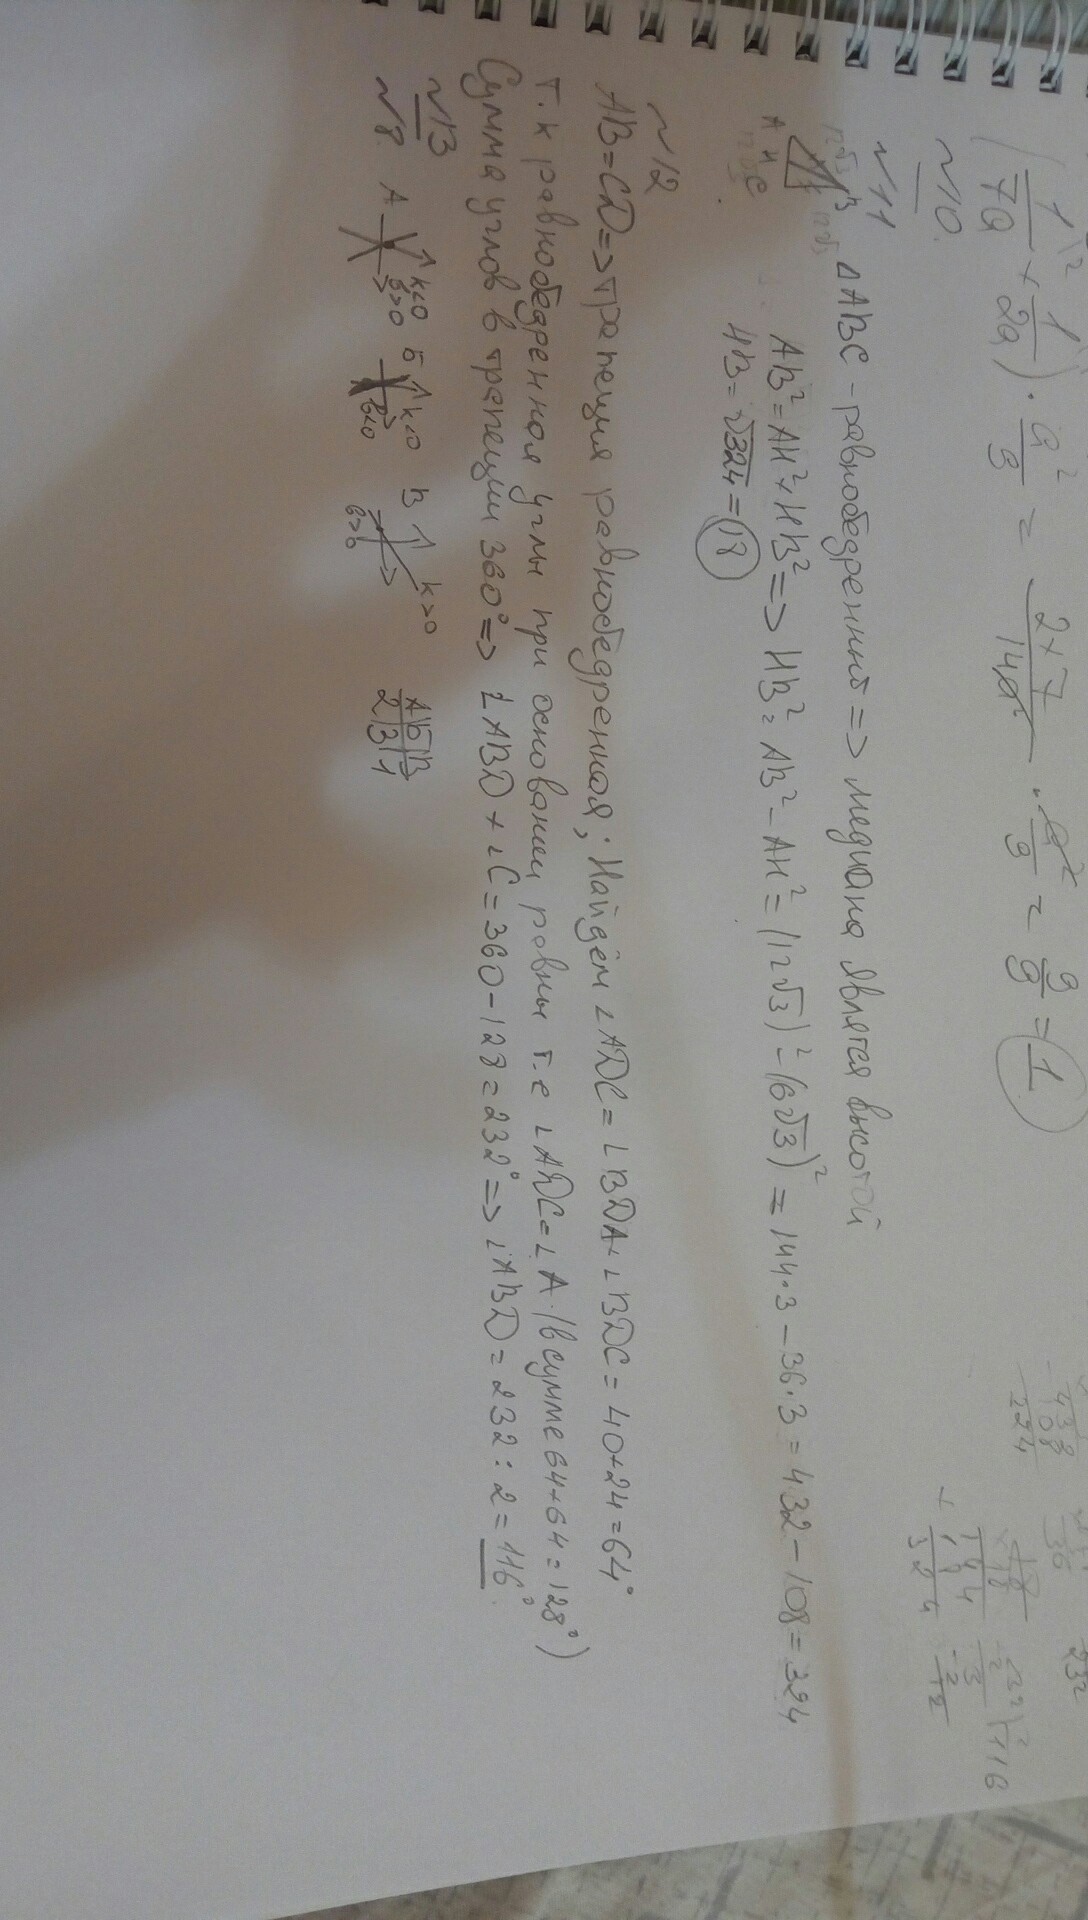 (1/7a + 1/2a) · a²/9 = 2+7/14a² · a²/9 = 9/9 = 1
~10.
~11
ΔABC - равнобедренный => медиана является высотой
12√3 B 12√3
A H C
AB² = AH² + HB² => HB² = AB² - AH² = (12√3)² - (6√3)² = 144·3 - 36·3 = 432 - 108 = 324
HB = √324 = 18
~12
AB=CD => трапеция равнобедренная; Найдём ∠ADC = ∠BDA + ∠BDC = 40+24=64°
т.к равнобедренная углы при основании равны т.е ∠ADC=∠A. (в сумме 64+64=128°)
Сумма углов в трапеции 360° => ∠ABD + ∠C = 360-128 = 232° => ∠ABD = 232 : 2 = 116°.
~13
~8. А k<0 b>0 Б k<0 b<0 В k>0 b>0
А|Б|В
2|3|1